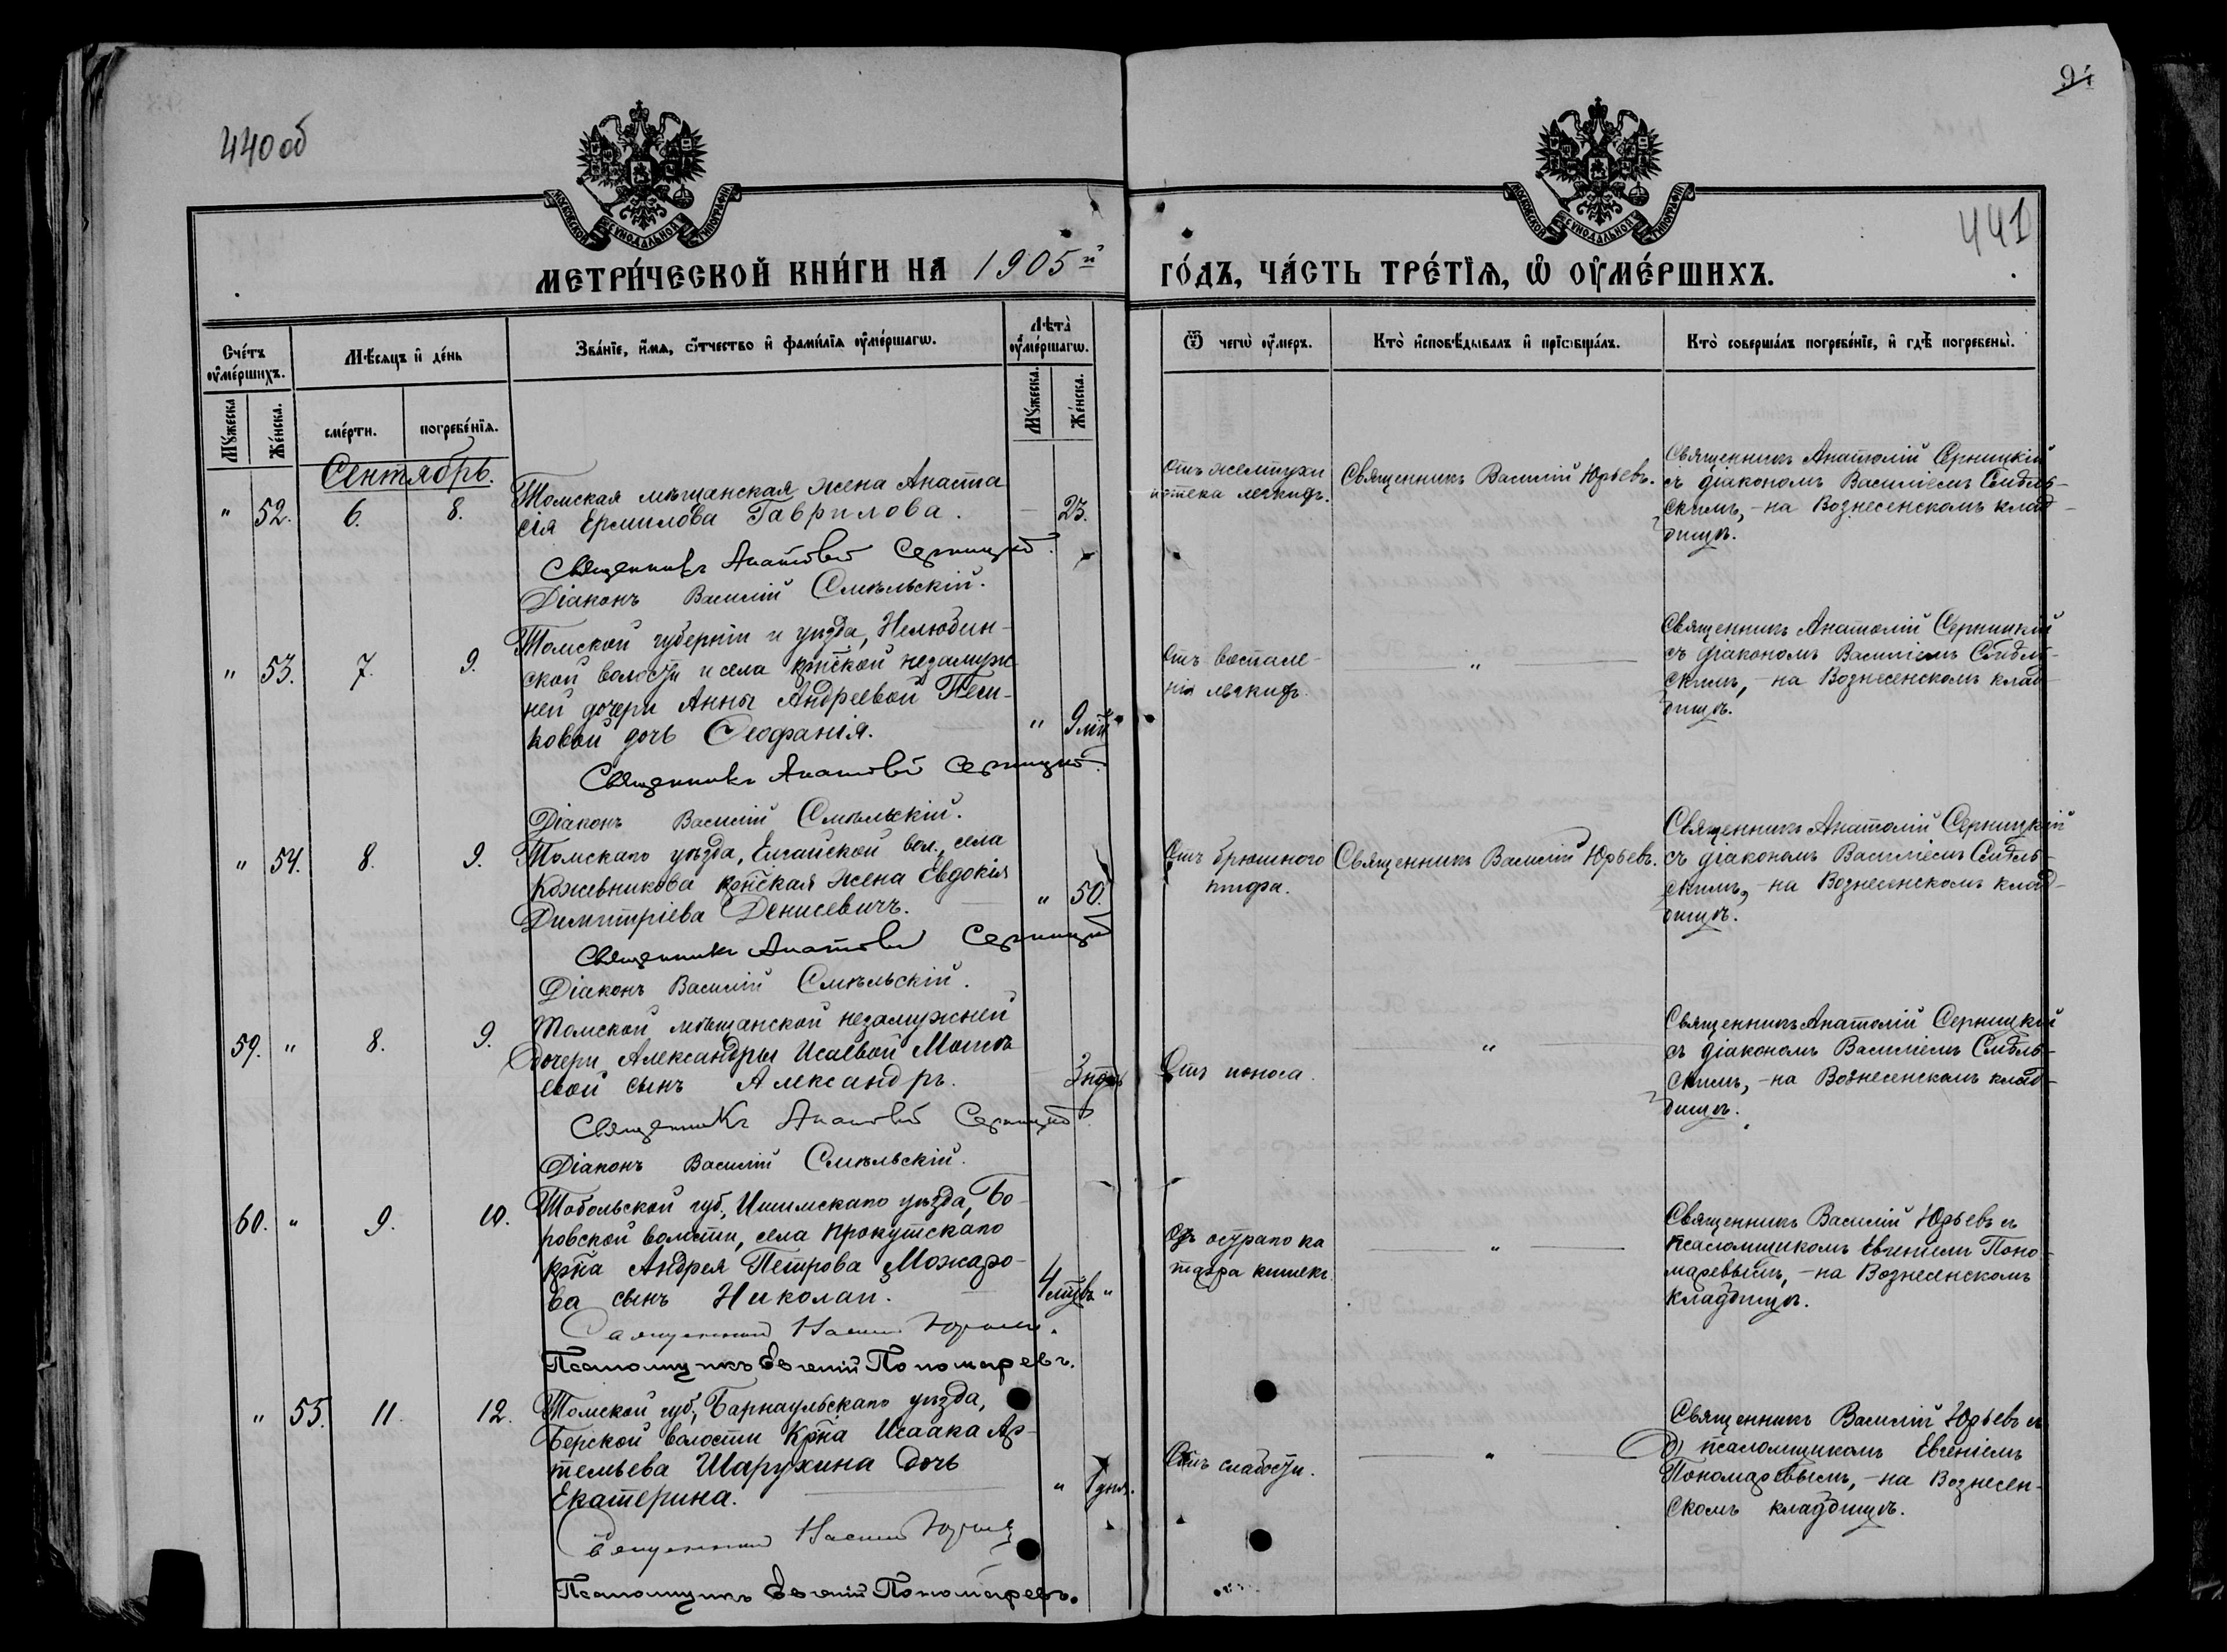 440 об
94
441
МОСКОВСКОЙ СѴНОДАЛЬНОЙ ТИПОГРАФІИ
МОСКОВСКОЙ СѴНОДАЛЬНОЙ ТИПОГРАФІИ
МЕТРИ́ЧЕСКОЙ КНИ́ГИ НА 1905й
ГО́ДЪ, ЧА́СТЬ ТРЕ́ТЇѦ, Ѡ҆ ОУ҆МЕ́РШИХЪ.
Сче́тъ оу҆ме́ршихъ.
Мѣ́сяцъ и҆ де́нь
Зва́нїе, и҆́мя, ѻ҆́тчество и҆ фами́лїя оу҆ме́ршагѡ.
Лѣта̀ оу҆ме́ршагѡ.
Ѿ чегѡ̀ оу҆́меръ.
Кто̀ и҆сповѣ́дывалъ и҆ прїѡбща́лъ.
Кто̀ соверша́лъ погребе́нїе, и҆ гдѣ̀ погребены̀.
Мꙋ́жеска
Же́нска.
сме́рти.
погребе́нїя.
Мꙋ́жеска.
Же́нска.
Сентябрь.
" 52. 6. 8.
Томская мѣщанская жена Анаста
сія Ермилова Гаврилова. 23.
Священникъ Анатолій Серницкій.
Діаконъ Василій Смѣльскій.
Отъ желтухи
и отека легкихъ.
Священникъ Василій Юрьевъ.
Священникъ Анатолій Серницкій
съ діакономъ Василіемъ Смѣль-
скимъ, - на Вознесенскомъ клад-
бищѣ.
" 53. 7. 9.
Томской губерніи и уѣзда, Нелюбин-
ской волости и села крест҃ской незамуж
ней дочери Анны Андреевой Пеш-
ковой дочь Ѳеофанія. " 9 м.
Священникъ Анатолій Серницкій.
Діаконъ Василій Смѣльскій.
Отъ воспале-
нія легкихъ.
"
Священникъ Анатолій Серницкій
съ діакономъ Василіемъ Смѣль-
скимъ, - на Вознесенскомъ клад-
бищѣ.
" 54. 8. 9.
Томскаго уѣзда, Елгайской вол., села
Кожевникова крест҃ская жена Евдокія
Димитріева Денисевичъ. " 50.
Священникъ Анатолій Серницкій
Діаконъ Василій Смѣльскій.
Отъ брюшного
тифа.
Священникъ Василій Юрьевъ.
Священникъ Анатолій Серницкій
съ діакономъ Василіемъ Смѣль-
скимъ, - на Вознесенскомъ клад-
бищѣ.
59. " 8. 9.
Томской мѣщанской незамужней
дочери Александры Исаевой
евой сынъ Александръ. 3
Священникъ Анатолій Серницкій.
Діаконъ Василій Смѣльскій.
Отъ поноса.
"
Священникъ Анатолій Серницкій
съ діакономъ Василіемъ Смѣль-
скимъ, - на Вознесенскомъ клад-
бищѣ.
60. " 9. 10.
Тобольской губ., Ишимскаго уѣзда, Бо-
ровской волости, села Прокутскаго
кр҃на Андрея Петрова Можаро-
ва сынъ Николай. 4 "
Священникъ Василій Юрьевъ.
Псаломщикъ Евгеній Пономаревъ.
Отъ остраго ка
тарра кишекъ.
"
Священникъ Василій Юрьевъ съ
псаломщикомъ Евгеніемъ Поно-
маревымъ, - на Вознесенскомъ
кладбищѣ.
" 55. 11. 12.
Томской губ., Барнаульскаго уѣзда,
Бердской волости кр҃на Исаака Ар-
темьева Шарухина дочь
Екатерина. " 1 дня.
Священникъ Василій Юрьевъ
Псаломщикъ Евгеній Пономаревъ.
Отъ слабости.
"
Священникъ Василій Юрьевъ съ
псаломщикомъ Евгеніемъ
Пономаревымъ, - на Вознесен-
скомъ кладбищѣ.